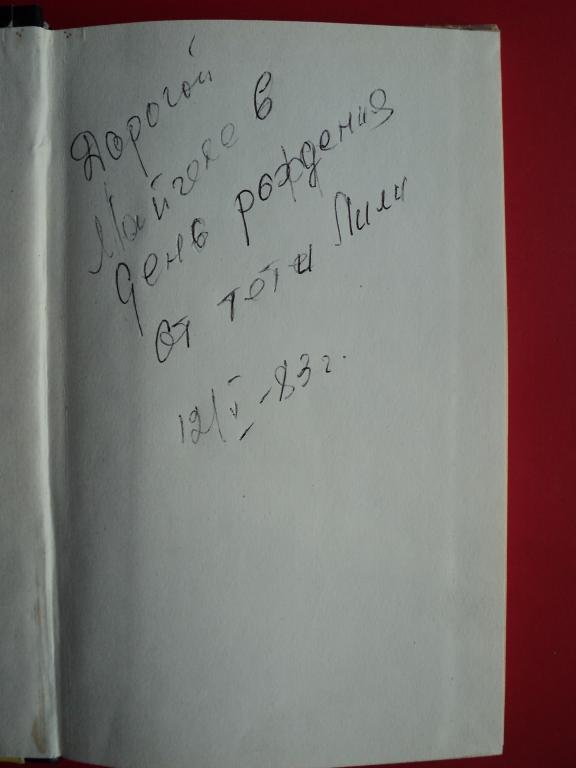 Дорогой
Майечке в
день рождения
от тёти Лили
12/V-83 г.